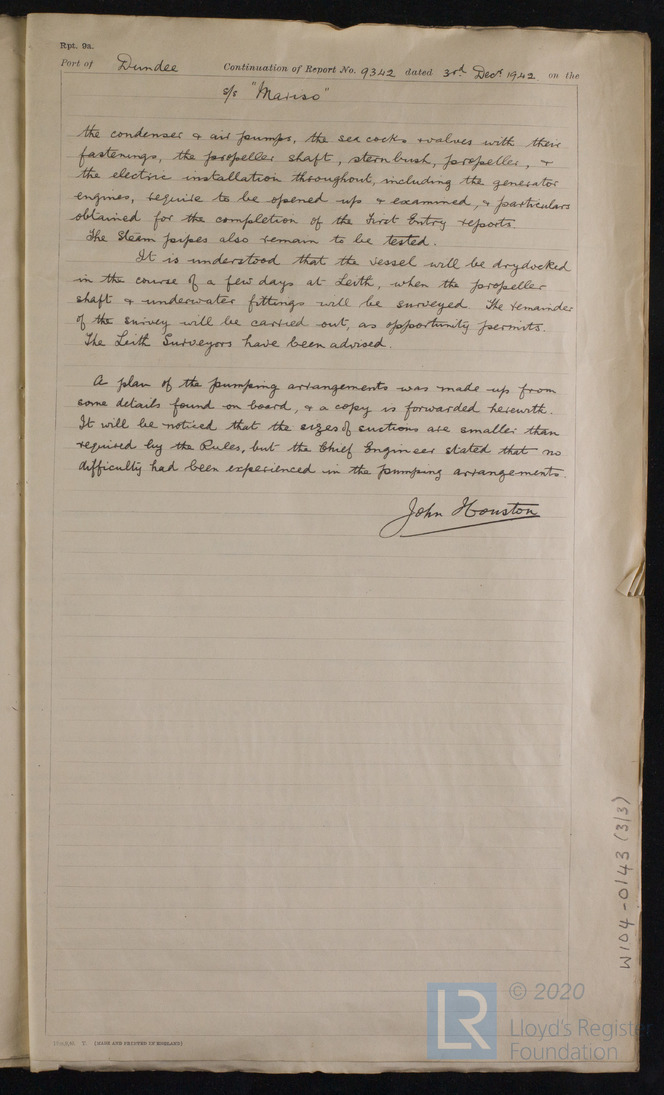 Rpt. 9a.
Port of Dundee Continuation of Report No. 9342 dated 3rd Decr 1942 on the
s/s "Mariso"
the condenser & air pumps, the sea cocks & valves with their
fastenings, the propeller shaft, stern bush, propeller, &
the electric installation throughout, including the generator
engines, require to be opened up & examined, & particulars
obtained for the completion of the First Entry reports.
The Steam pipes also remain to be tested.
It is understood that the vessel will be drydocked
in the course of a few days at Leith, when the propeller
shaft & underwater fittings will be surveyed. The remainder
of the survey will be carried out, as opportunity permits.
The Leith Surveyors have been advised.
A plan of the pumping arrangements was made up from
some details found on board, & a copy is forwarded herewith.
It will be noticed that the sizes of suctions are smaller than
required by the Rules, but the Chief Engineer stated that no
difficulty had been experienced in the pumping arrangements.
John Houston
W104-0143 (3/3)
(MADE AND PRINTED IN ENGLAND)
LR
© 2020
Lloyd's Register
Foundation